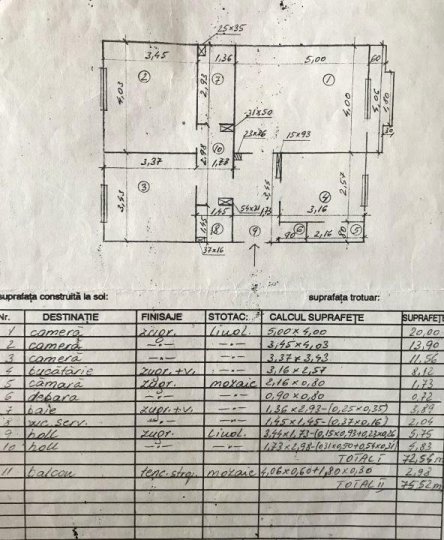 25×35
3,45
1,36
5,00
60
2
7
1
4,03
2,93
4,00
4,06
1,80
31×50
23×26
15×93
30
10
2,98
3,37
1,73
3
3,43
3,44
4
2,57
3,16
1,45
54×31
1,73
1,45
8
9
6
5
90
2,16
80
37×16
suprafața construită la sol:
suprafața trotuar:
Nr. DESTINAȚIE FINISAJE STOTAC: CALCUL SUPRAFEȚE SUPRAFEȚE
1 cameră zugr. linol. 5,00×4,00 20,00
2 cameră —·— —·— 3,45×4,03 13,90
3 cameră —·— —·— 3,37×3,43 11,56
4 bucătărie zugr.+v. —·— 3,16×2,57 8,12
5 cămară zugr. mozaic 2,16×0,80 1,73
6 debara —·— —·— 0,90×0,80 0,72
7 baie zugr.+v. —·— 1,36×2,93-(0,25×0,35) 3,89
8 —·— —·— 1,45×1,45-(0,37×0,16) 2,04
9 holl zugr. linol. 3,44×1,73-(0,15×0,93+0,23×0,26 5,75
10 holl —·— —·— 1,73×2,98-(0,31×0,50+0,54×0,31) 4,83
TOTAL I 72,56 m
11 balcon mozaic 4,06×0,60+1,80×0,30 2,98
TOTAL II 75,52 m